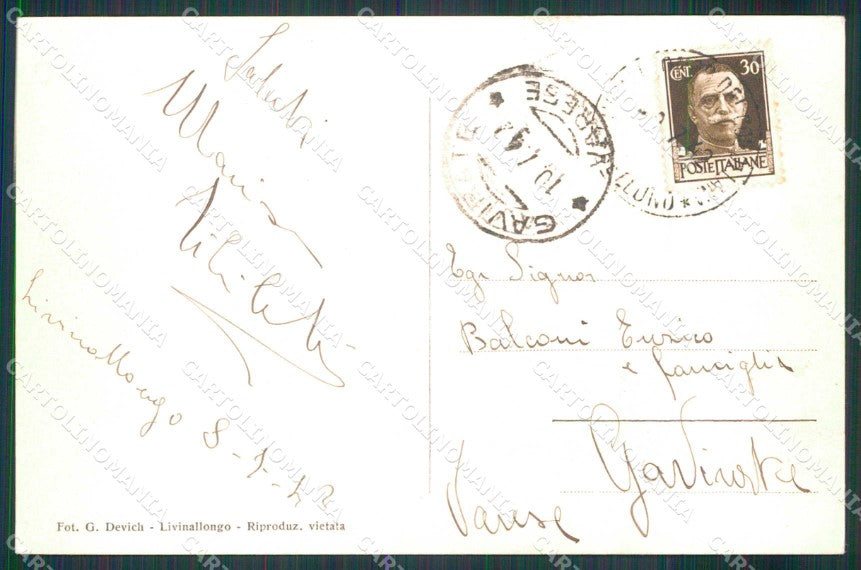 Saluti
Livinallongo 8-7-42
Fot. G. Devich - Livinallongo - Riproduz. vietata
GAVIRATE
* VARESE *
10.7.42
CENT. 30
POSTE ITALIANE
Egr Signor
Balconi Enrico
e famiglia
Gavirate
Varese
CARTOLINOMANIA